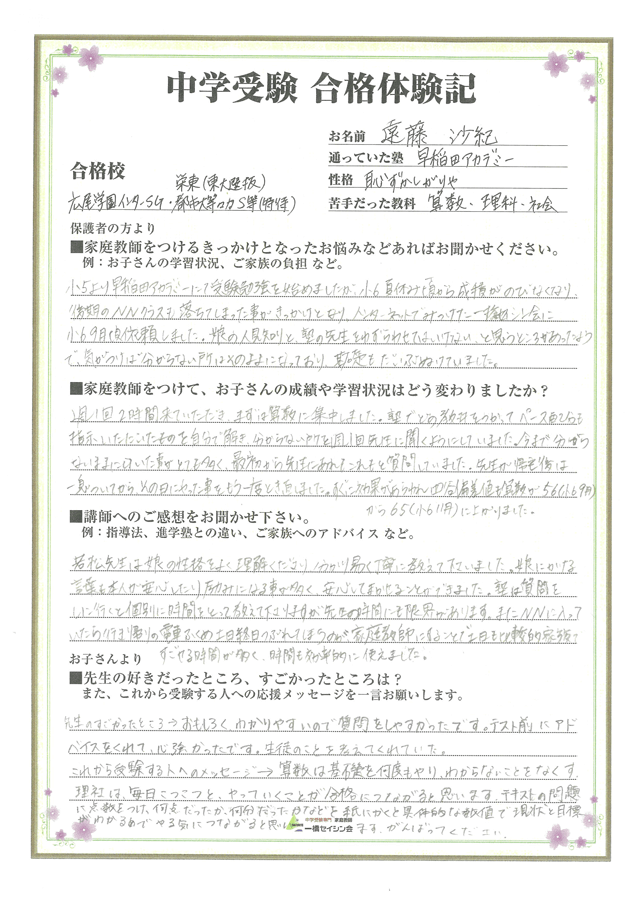 中学受験 合格体験記
お名前 遠藤 沙紀
通っていた塾 早稲田アカデミー
合格校
栄東(東大選抜)
性格 恥ずかしがりや
広尾学園インターSG・都市大等々力S特(特待)
苦手だった教科 算数・理科・社会
保護者の方より
■家庭教師をつけるきっかけとなったお悩みなどあればお聞かせください。
例：お子さんの学習状況、ご家族の負担 など。
小5より早稲田アカデミーにて受験勉強を始めましたが、小6夏休み頃から成績がのびなくなり、
後期のNNクラスも落ちてしまった事がきっかけとなり、インターネットでみつけた一橋セイシン会に
小6 9月頃依頼しました。娘の人見知りと、塾の先生をわずらわせてはいけない、と思うところがあったよう
で、気がつけば分からない所はそのままになっており、
■家庭教師をつけて、お子さんの成績や学習状況はどう変わりましたか？
週1回2時間来ていただき、まずは算数に集中しました。塾の教材をつかって
指示いただいたものを自分で解き分からない所を週1回先生に聞くようにしていました。今まで分から
ないままにしていた事がとても多く、最初から先生にあれもこれもと質問していました。先生が帰宅後は
一息ついてから、その日にやった事をもう一度とき直しました。すぐに効果があらわれ四谷偏差値も算数が56(小6 9月)
から65(小6 11月)に上がりました。
■講師へのご感想をお聞かせ下さい。
例：指導法、進学塾との違い、ご家族へのアドバイス など。
若松先生は娘の性格をよく理解くださり、分かり易く丁寧に教えて下さいました。娘にかける
言葉も本人が安心したり励みになる事が多く、安心してまかせることができました。塾は質問を
しに行くと個別に時間をとって教えて下さいますが先生の時間にも限界があります。またNNに入って
いたら行き帰りの電車ふくめ土日終日つぶれてしまうのが家庭教師にすることで土日も比較的家族で
すごせる時間が多く、時間も効率的に使えました。
お子さんより
■先生の好きだったところ、すごかったところは？
また、これから受験する人への応援メッセージを一言お願いします。
先生のすごかったところ→おもしろく、わかりやすいので質問をしやすかったです。テスト前にアド
バイスをくれて、心強かったです。生徒のことを考えてくれていた。
これから受験する人へのメッセージ→算数は基礎を何度もやり、わからないことをなくす
理社は、毎日こつこつと、やっていくことが合格につながると思います。テキストの問題
に点数をつけ、何点だったか、何分だったかなどを紙にかくと具体的な数値で現状と目標
がわかるのでやる気につながると思います。がんばってください。
中学受験専門 家庭教師
一橋セイシン会